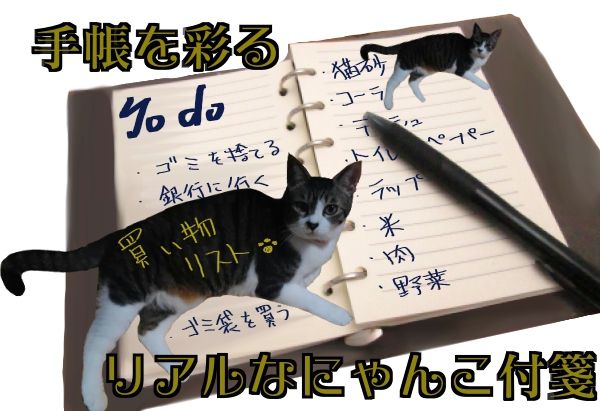 手帳を彩る
To do
・ゴミを捨てる
・銀行に行く
買い物
リスト
・ゴミ袋を買う
・猫砂
・コーラ
・トイレ ペーパー
・ラップ
・米
・肉
・野菜
リアルなにゃんこ付箋